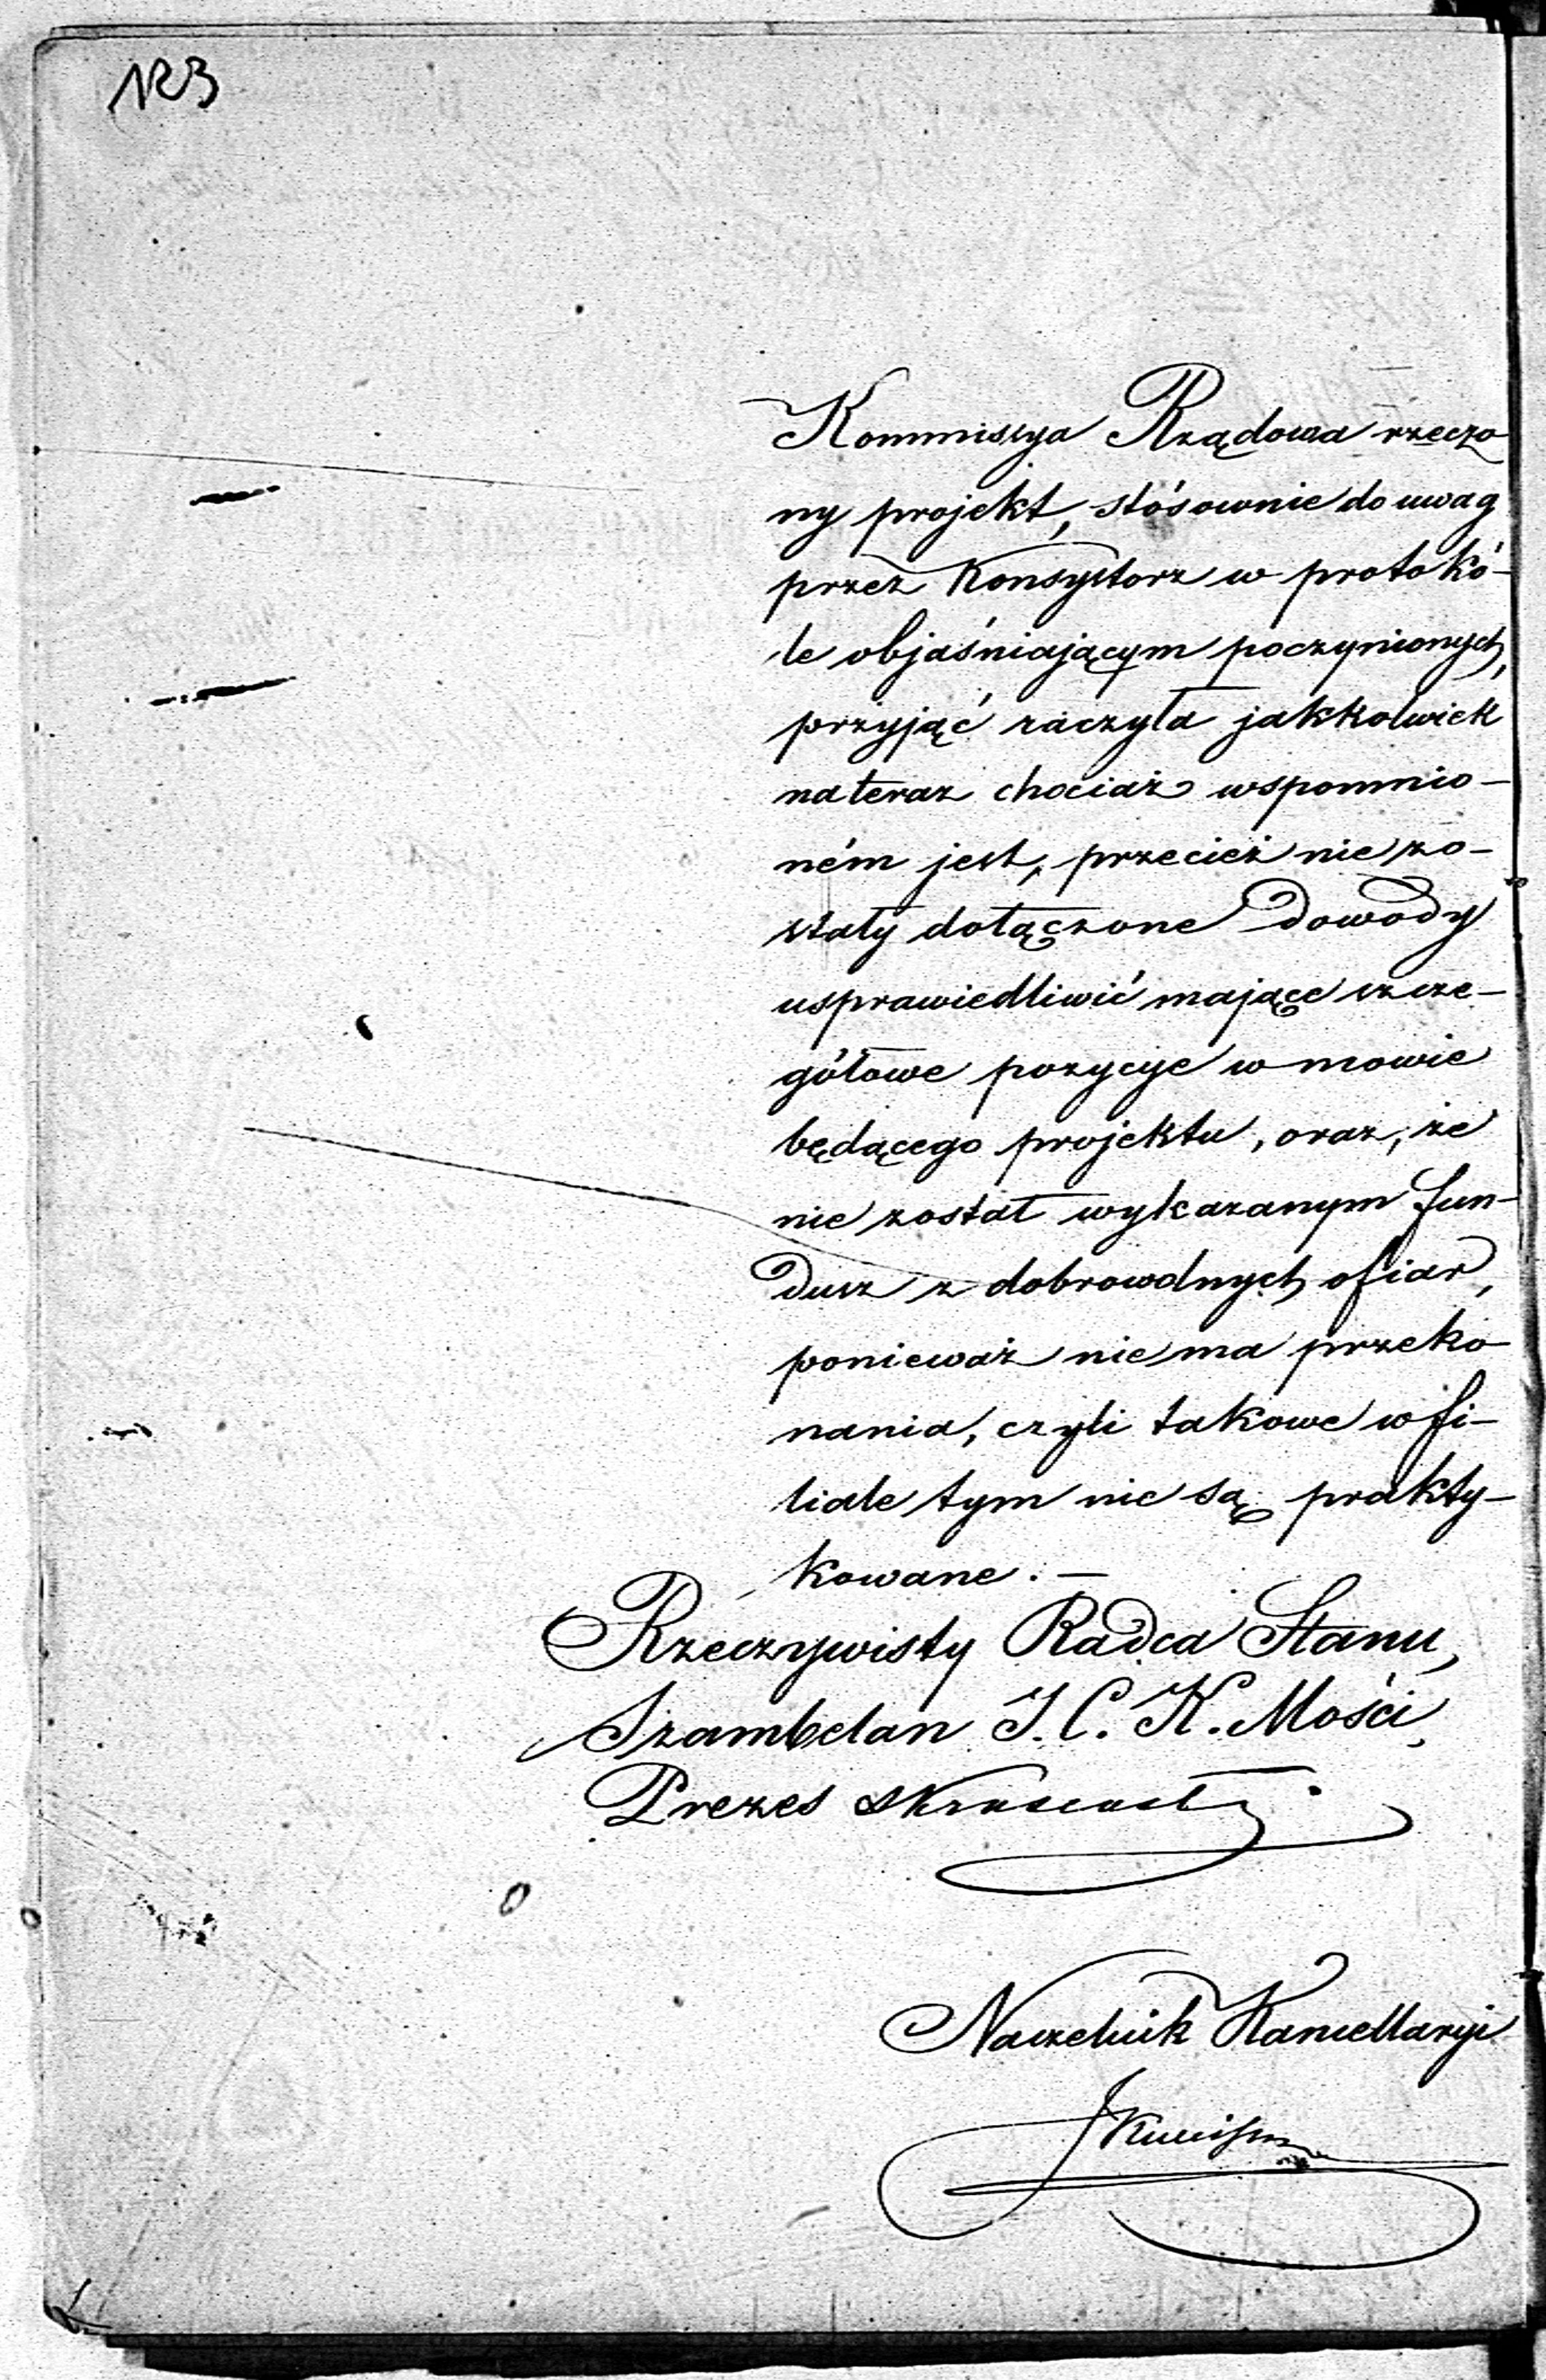 123
Kommissya Rządowa rzeczo
ny projekt, stósownie do uwag
przez Konsystorz w protokó-
le objaśniającym poczynionych,
przyjąć raczyła jakkolwiek
na teraz chociaż wspomnio-
ném jest, przecież nie zo-
stały dołączone dowody
usprawiedliwić mające szcze-
gółowe pozycye w mowie
będącego projektu, oraz, że
nie został wykazanym fun-
dusz z dobrowolnych ofiar,
ponieważ nie ma przeko
nania, czyli takowe w fi-
liale tym nie są prakty-
kowane. —
Rzeczywisty Radca Stanu,
Szambelan J. C. K. Mości,
Prezes
Naczelnik Kancellaryi